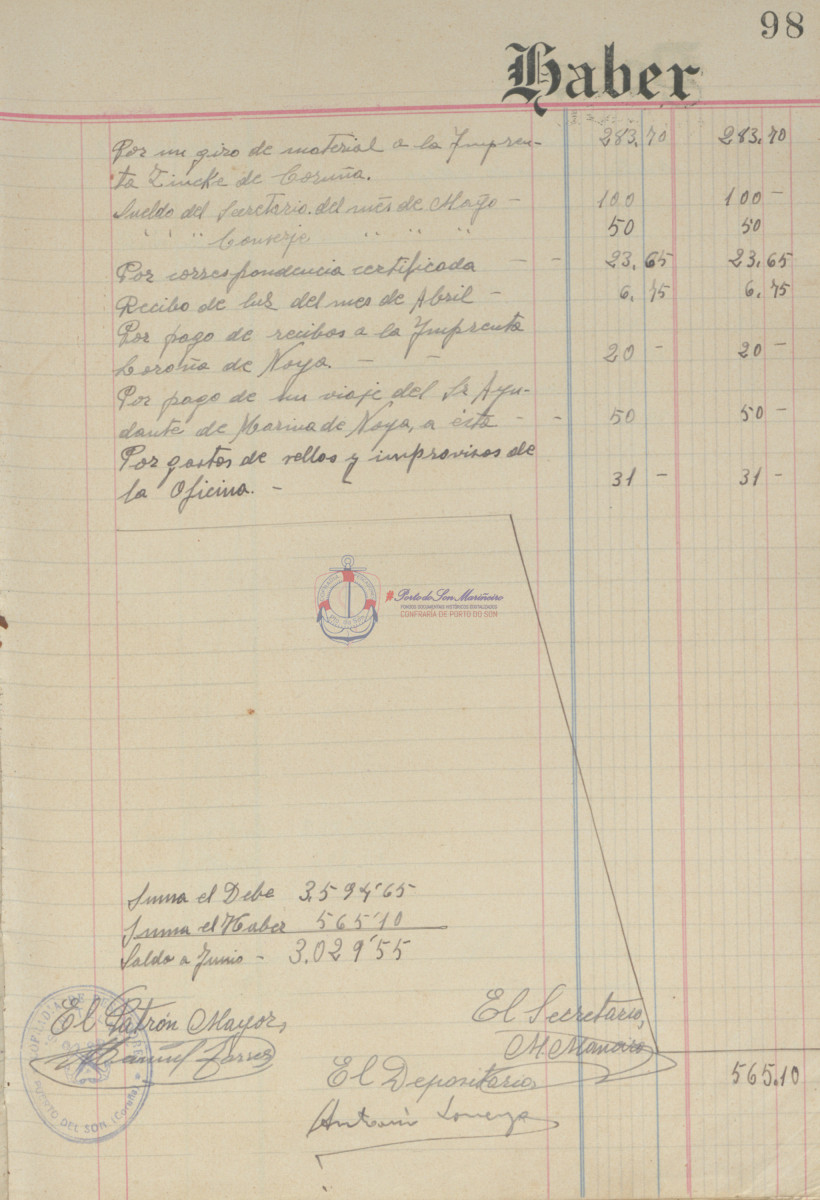 98
Haber
Por un giro de material a la Impren- 283.70 283.70
ta Zincke de Coruña.
Sueldo del Secretario del mes de Mayo - 100 100 -
" " " Conserje " " " 50 50
Por correspondencia certificada - - 23.65 23.65
Recibo de luz del mes de Abril - 6.75 6.75
Por pago de recibos a la Imprenta
Coroña de Noya. - - 20 - 20 -
Por pago de un viaje del Sr Ayu-
dante de Marina de Noya, a ésta - - 50 50 -
Por gastos de sellos y improvisos de
la Oficina. - 31 - 31 -
Porto do Son Mariñeiro
FONDOS DOCUMENTAIS HISTÓRICOS DIXITALIZADOS
CONFRARÍA DE PORTO DO SON
Suma el Debe 3.594'65
Suma el Haber 565'10
Saldo a Junio - 3.029'55
El Patrón Mayor,
El Secretario,
M. Maneiro
El Depositario
Antonio
565.10
PUERTO DEL SON (Coruña)